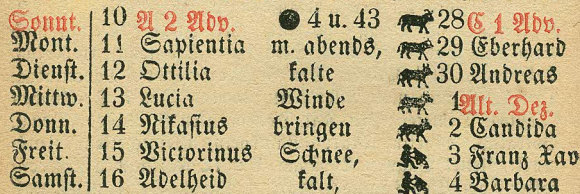 Sonnt. 10 A 2 Adv. ● 4 u. 43 28 C 1 Adv.
Mont. 11 Sapientia m. abends, 29 Eberhard
Dienst. 12 Ottilia kalte 30 Andreas
Mittw. 13 Lucia Winde 1 Alt. Dez.
Donn. 14 Nikasius bringen 2 Candida
Freit. 15 Victorinus Schnee, 3 Franz Xav
Samst. 16 Adelheid kalt, 4 Barbara